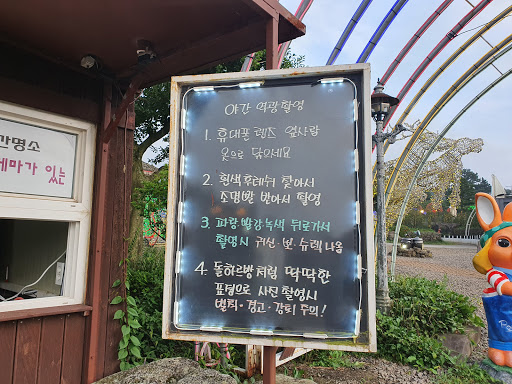 간명소
테마가 있는
야간 역광촬영
1. 휴대폰 렌즈 옆사람
옷으로 닦으세요
2. 흰색후레쉬 찾아서
조명발 받아서 촬영
3. 파랑빨강녹색 뒤로가서
촬영시 귀신·본·슈렉 나옴
4. 돌하르방처럼 딱딱한
표정으로 사진 촬영시
벌칙·경고·감퇴 주의!